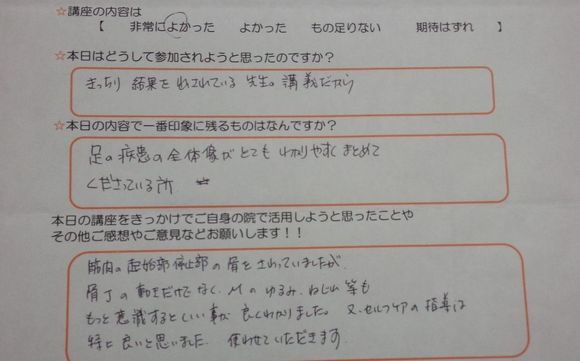 ☆講座の内容は
【 非常によかった よかった もの足りない 期待はずれ 】
☆本日はどうして参加されようと思ったのですか?
きっちり 結果を出されている 先生の講義だから
☆本日の内容で一番印象に残るものはなんですか?
足の疾患の全体像がとても わかりやすく まとめて
くださっている所
本日の講座をきっかけでご自身の院で活用しようと思ったことや
その他ご感想やご意見などお願いします!!
筋肉の起始部停止部の骨をさわっていましたが、
骨Jの動きだけでなく、Mのゆるみ、ねじれ 等も
もっと意識するといい事が 良くわかりました。 又、セルフケアの指導は
特に良いと思いました。 使わせていただきます。